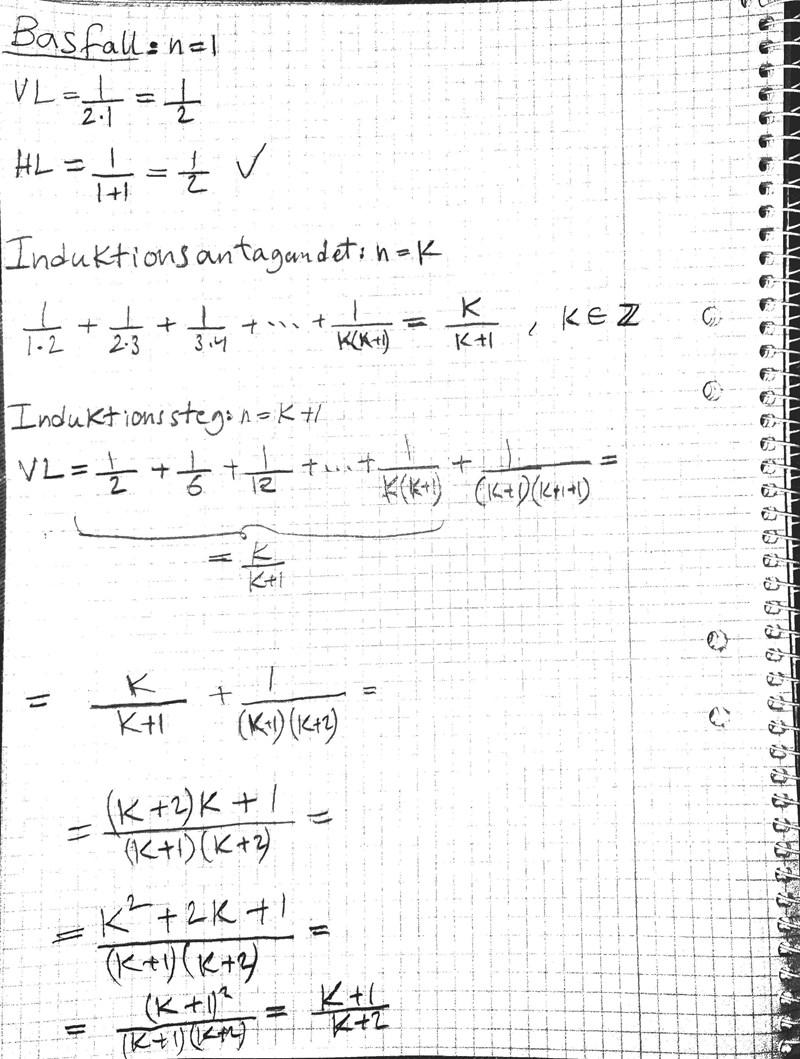 Basfall: n=1
VL = 1/(2·1) = 1/2
HL = 1/(1+1) = 1/2 ✓
Induktionsantagandet: n=K
1/(1·2) + 1/(2·3) + 1/(3·4) + ... + 1/(K(K+1)) = K/(K+1) , K∈ℤ
Induktionssteg: n=K+1
VL = 1/2 + 1/6 + 1/12 + ... + 1/(K(K+1)) + 1/((K+1)(K+1+1)) =
= K/(K+1)
= K/(K+1) + 1/((K+1)(K+2)) =
= ((K+2)K+1)/((K+1)(K+2)) =
= (K²+2K+1)/((K+1)(K+2)) =
= (K+1)²/((K+1)(K+2)) = (K+1)/(K+2)